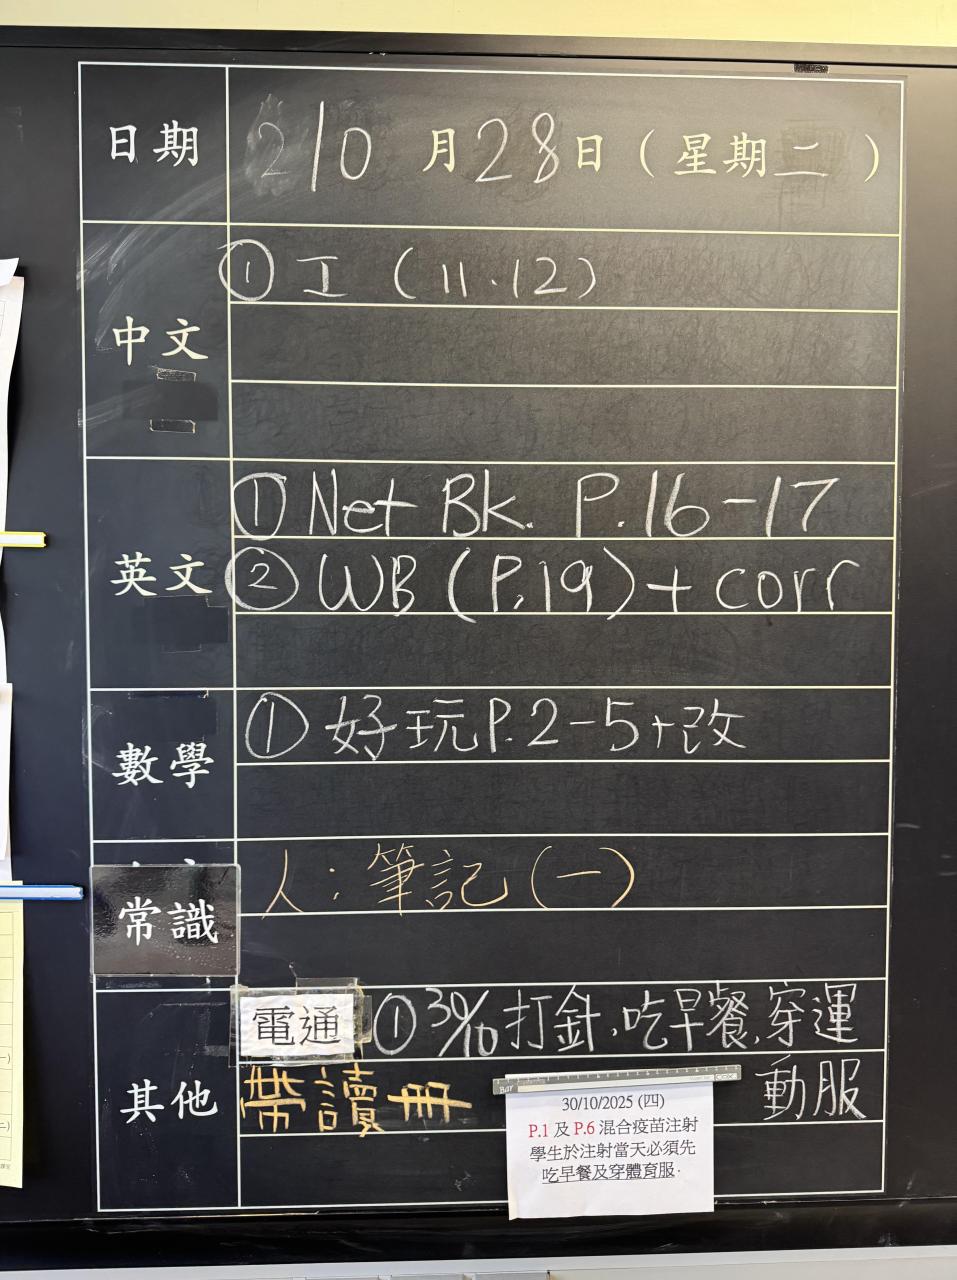 日期 10月28日（星期二）
中文
① 工（11.12）
英文
① Net Bk. P.16-17
② WB (P.19) + corr
數學
① 好玩P.2-5+改
常識
人：筆記（一）
其他
電通 ① 30/10 打針，吃早餐，穿運
動服
帶讀冊
Bar
30/10/2025 (四)
P.1 及 P.6 混合疫苗注射
學生於注射當天必須先
吃早餐及穿體育服．